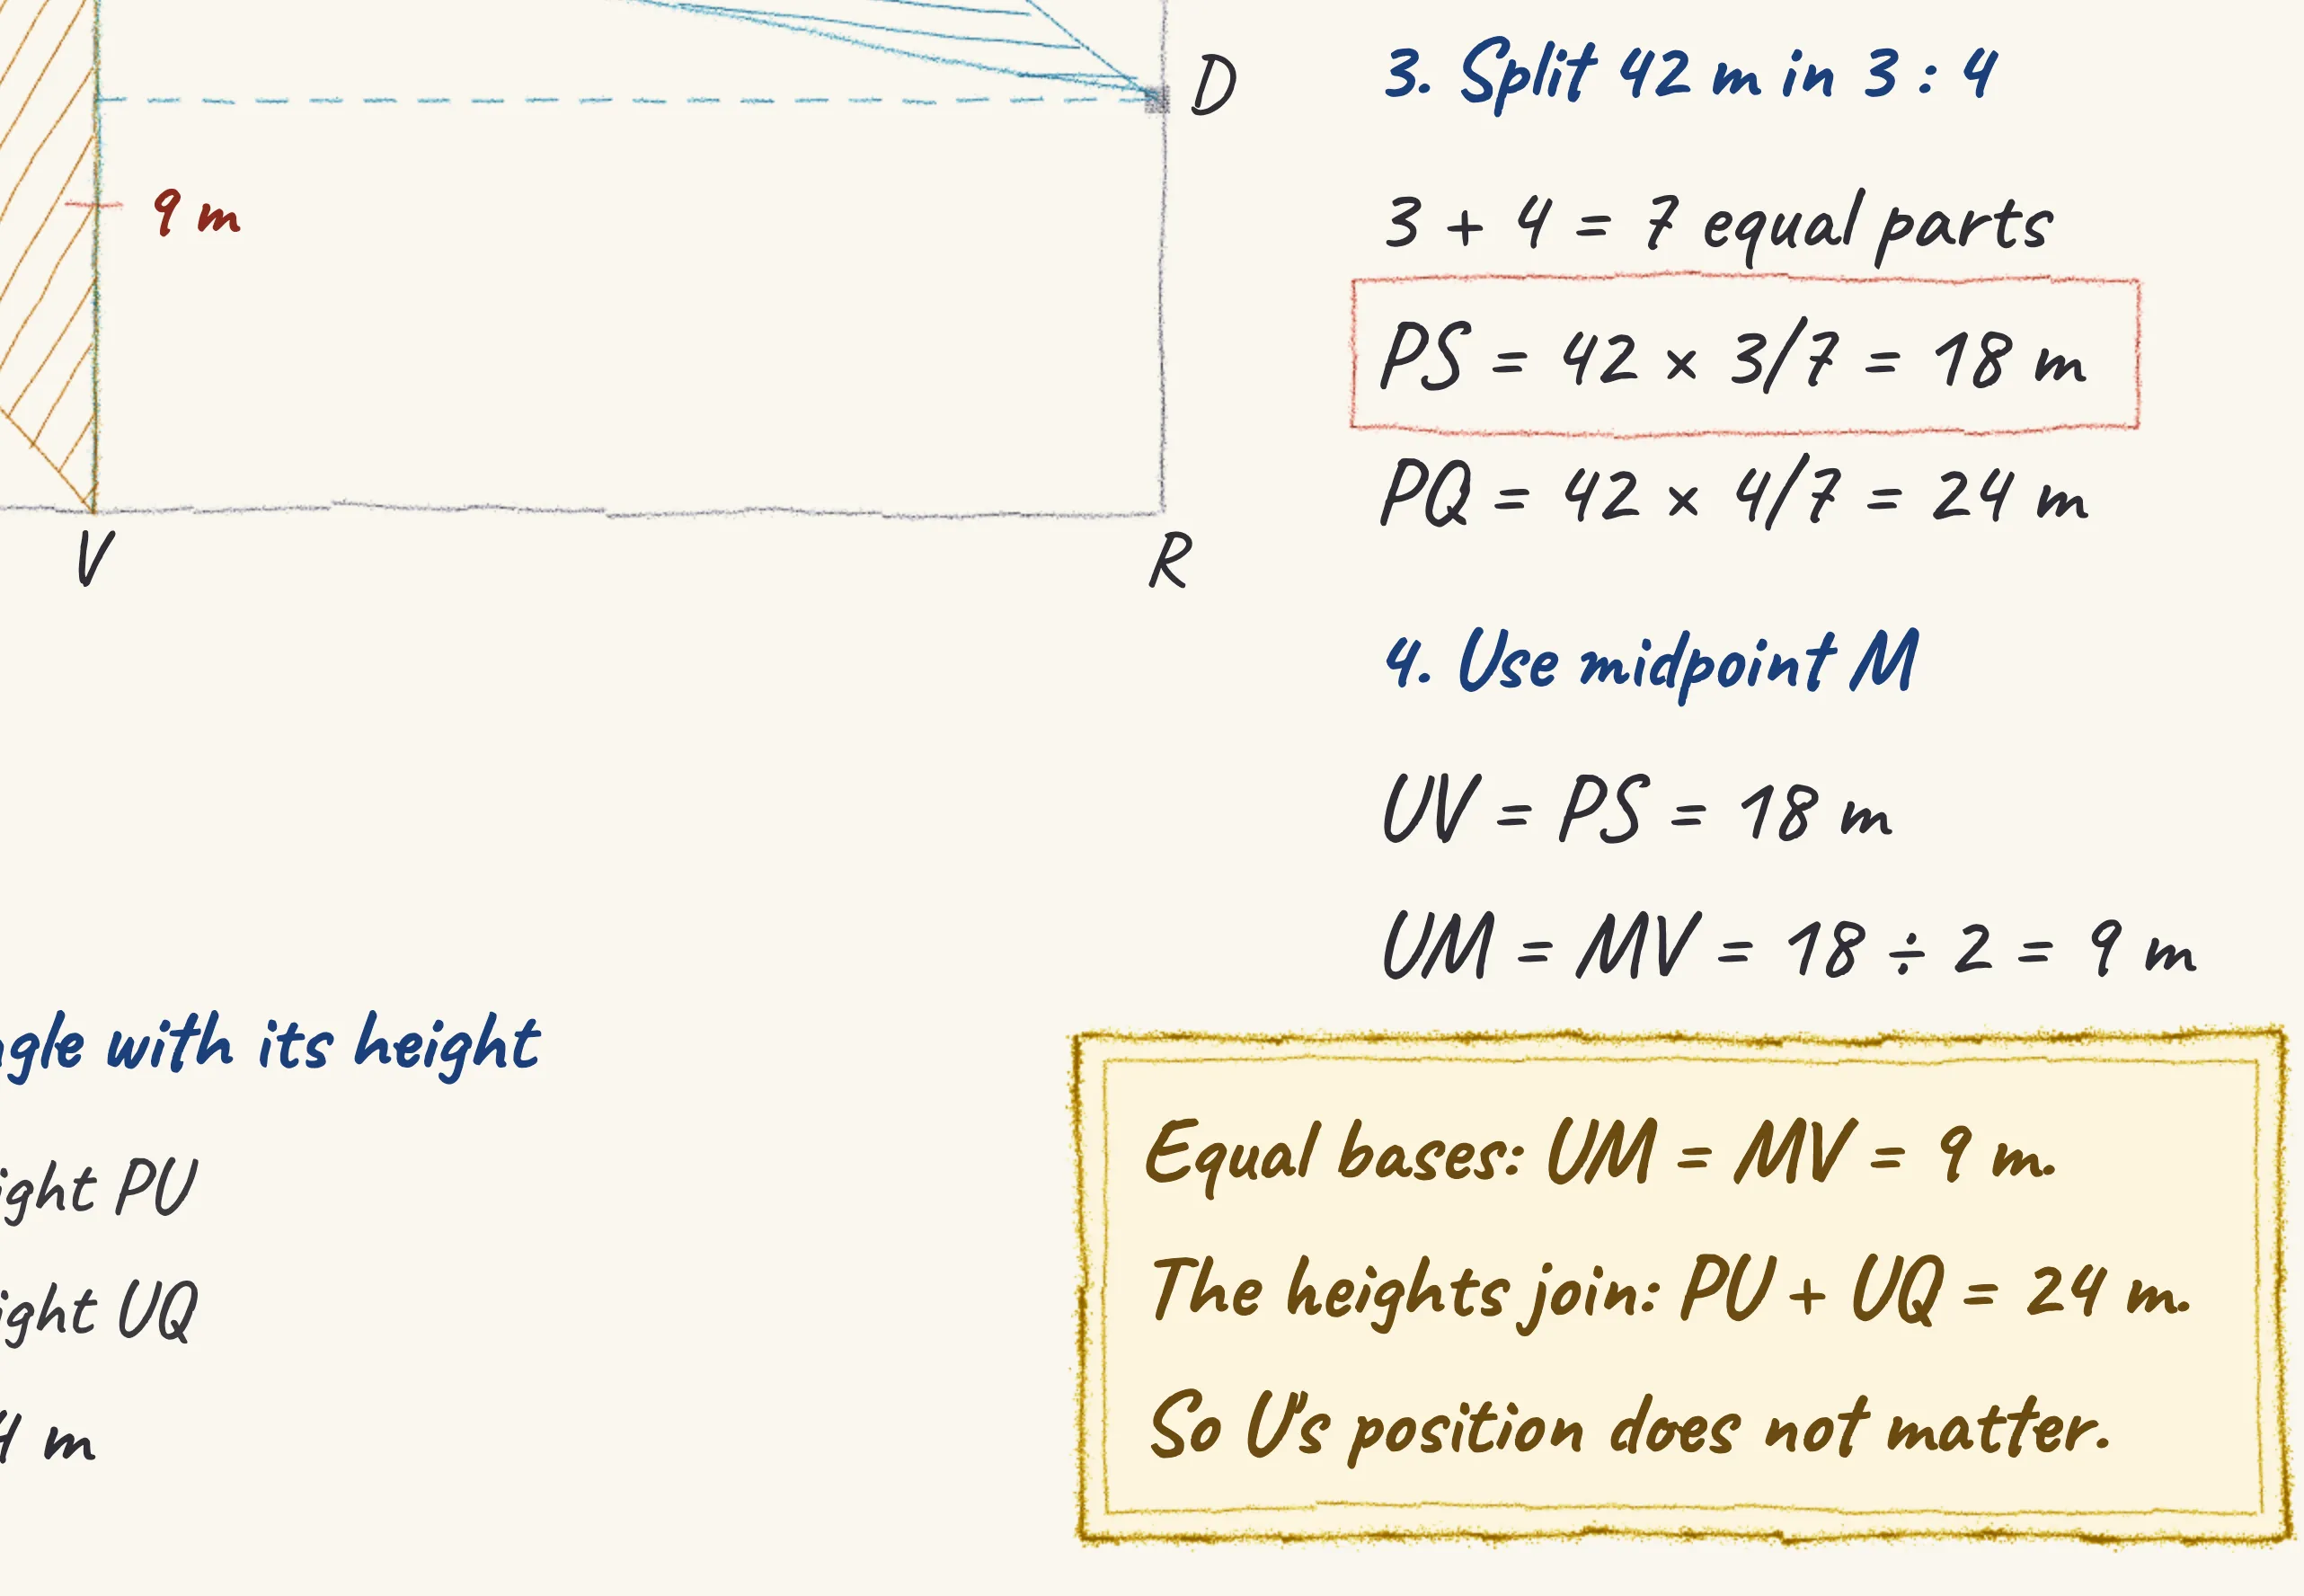 D
9 m
V
R
3. Split 42 m in 3 : 4
3 + 4 = 7 equal parts
PS = 42 × 3/7 = 18 m
PQ = 42 × 4/7 = 24 m
4. Use midpoint M
UV = PS = 18 m
UM = MV = 18 ÷ 2 = 9 m
with its height
PU
UQ
m
Equal bases: UM = MV = 9 m.
The heights join: PU + UQ = 24 m.
So U's position does not matter.